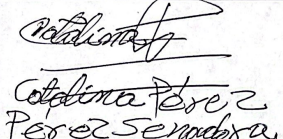 Catalina
Catalina Pérez
Pérez Senadora